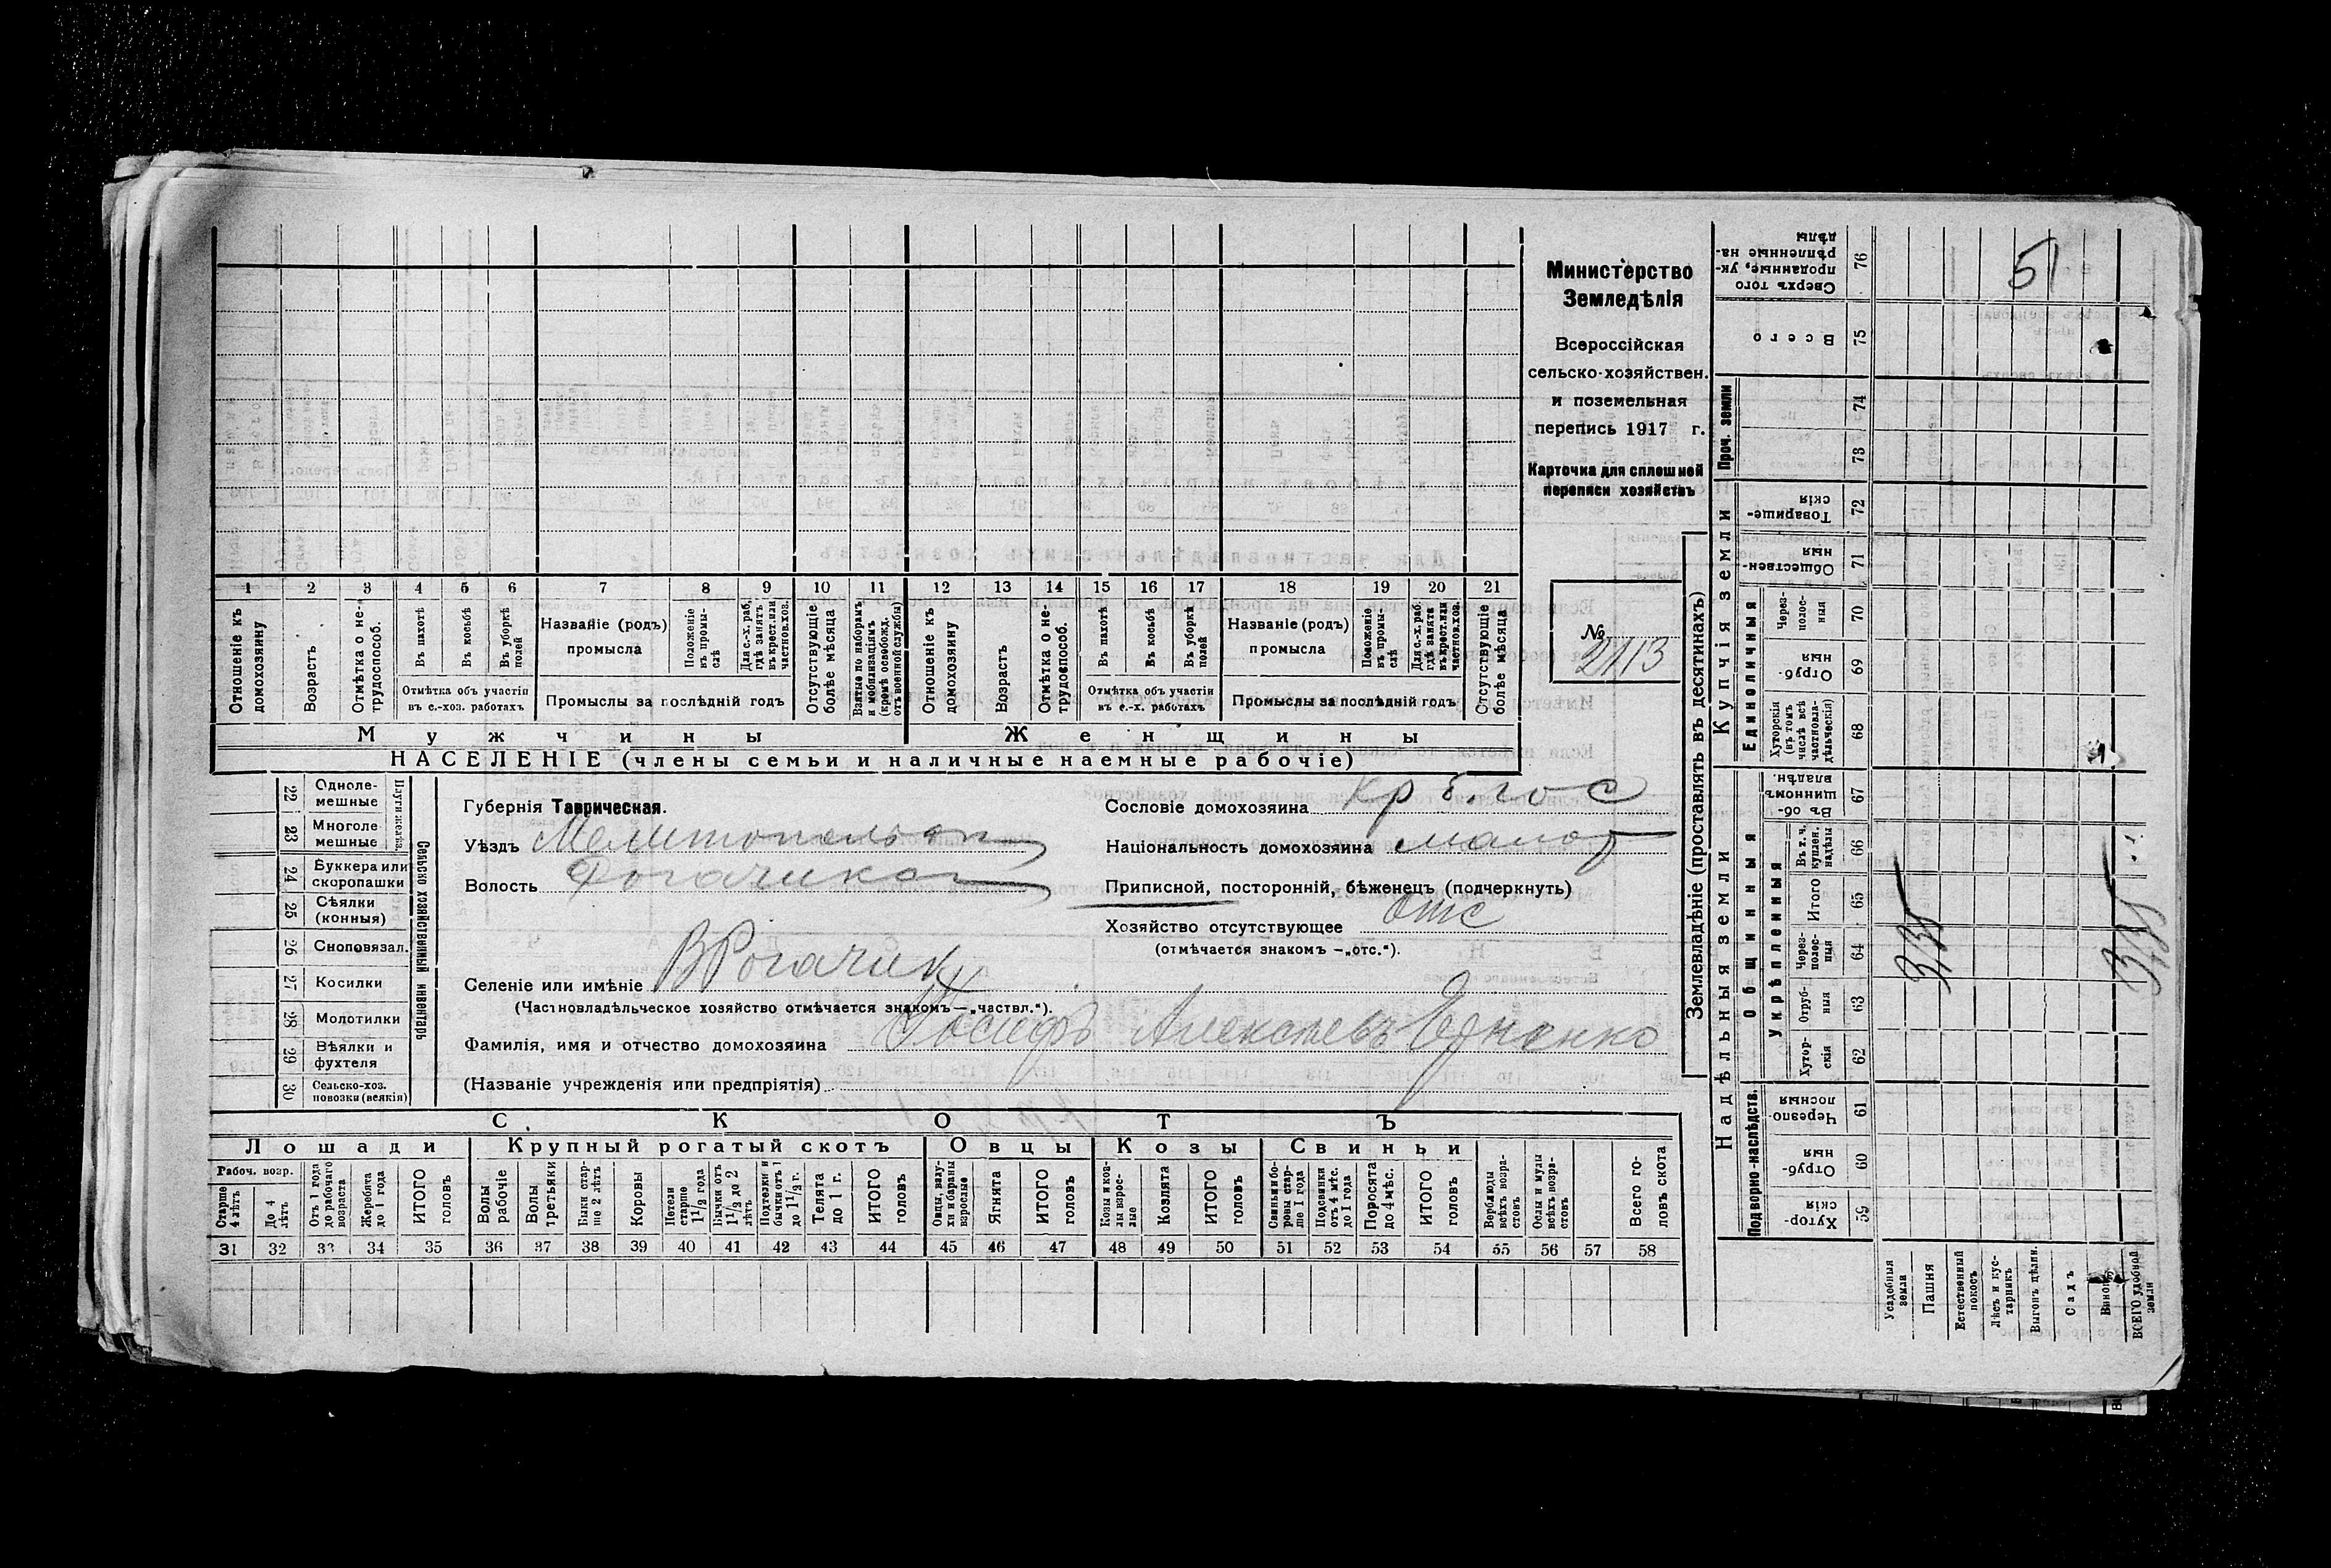 51
Министерство
Земледѣлія
Всероссійская
сельско-хозяйствен.
и поземельная
перепись 1917 г.
Карточка для сплошной
переписи хозяйствъ
№
2113
1 2 3 4 5 6 7 8 9 10 11 12 13 14 15 16 17 18 19 20 21
Отношеніе къ домохозяину
Возрастъ
Отмѣтка о не-трудоспособ.
Въ пахотѣ
Въ косьбѣ
Въ уборкѣ полей
Отмѣтка объ участіи
въ с.-хоз. работахъ
Названіе (родъ)
промысла
Положеніе въ промы-слѣ
Для с.-х. раб. гдѣ занятъ въ крест. или частнов. хоз.
Промыслы за послѣдній годъ
Отсутствующіе болѣе мѣсяца
Взятые по наборамъ и мобилизаціямъ (кромѣ освобожд. отъ военной службы)
Отношеніе къ домохозяину
Возрастъ
Отмѣтка о не-трудоспособ.
Въ пахотѣ
Въ косьбѣ
Въ уборкѣ полей
Отмѣтка объ участіи
въ с.-х. работахъ
Названіе (родъ)
промысла
Положеніе въ промы-слѣ
Для с.-х. раб. гдѣ занята въ крест. или частнов. хоз.
Промыслы за послѣдній годъ
Отсутствующіе болѣе мѣсяца
Мужчины Женщины
НАСЕЛЕНІЕ (члены семьи и наличные наемные рабочіе)
22 Одноле-мешные
23 Многоле мешные
Плуги желѣз.
24 Буккера или скоропашки
25 Сѣялки (конныя)
26 Сноповязал.
27 Косилки
28 Молотилки
29 Вѣялки и фухтеля
30 Сельско-хоз. повозки (всякія)
Сельско хозяйственный инвентарь
Губернія Таврическая.
Уѣздъ
Волость
Селеніе или имѣніе В Рогачик
(Частновладѣльческое хозяйство отмѣчается знакомъ—„частвл.“).
Фамилія, имя и отчество домохозяина Іосифъ Алексѣевъ
(Названіе учрежденія или предпріятія)
Сословіе домохозяина
Національность домохозяина малор
Приписной, посторонній, бѣженецъ (подчеркнуть)
Хозяйство отсутствующее отс
(отмѣчается знакомъ —„отс.“).
СКОТЪ
Лошади Крупный рогатый скотъ Овцы Козы Свиньи
Рабоч. возр.
Старше 4 лѣтъ
До 4 лѣтъ
Отъ 1 года до рабочаго возраста
Жеребята до 1 года
ИТОГО головъ
Волы рабочіе
Волы третьяки
Быки стар-ше 2 лѣтъ
Коровы
Нетели старше 1 1/2 года
Бычки отъ 1 1/2 до 2 лѣтъ
Подтелки и бычки отъ 1 до 1 1/2 г.
Телята до 1 г.
ИТОГО головъ
Овцы, валу-хи и бараны взрослые
Ягнята
ИТОГО головъ
Козы и коз-лы взрос-лые
Козлята
ИТОГО головъ
Свиньи и бо-ровы стар-ше 1 года
Подсвинки отъ 4 мѣс. до 1 года
Поросята до 4 мѣс.
ИТОГО головъ
Верблюды всѣхъ возра-стовъ
Ослы и мулы всѣхъ возра-стовъ
Всего го-ловъ скота
31 32 33 34 35 36 37 38 39 40 41 42 43 44 45 46 47 48 49 50 51 52 53 54 55 56 57 58
Землевладѣніе (проставлять въ десятинахъ)
Надѣльныя земли
Купчія земли
Подворно-наслѣдств.
Общинныя
Укрѣпленныя
Единоличныя
Проч. земли
76 Сверхъ того проданные, ук-рѣпленные на-дѣлы
75 Всего
74
73
72 Товарище-скія
71 Обществен-ныя
70 Через-полос-ныя
69 Отруб-ныя
68 Хуторскія (въ томъ числѣ всѣ частновла-дѣльческія)
67 Въ об-щинномъ владѣн.
66 Въ т. ч. куплен. надѣлы
65 Итого
64 Через-полос-ныя
63 Отруб-ныя
62 Хутор-скія
61 Черезпо-лосныя
60 Отруб-ныя
59 Хутор-скія
Усадебныя земли
Пашня
Естественный покосъ
Лѣсъ и кус-тарникъ
Выгонъ дѣли.
Садъ
ВСЕГО удобной земли